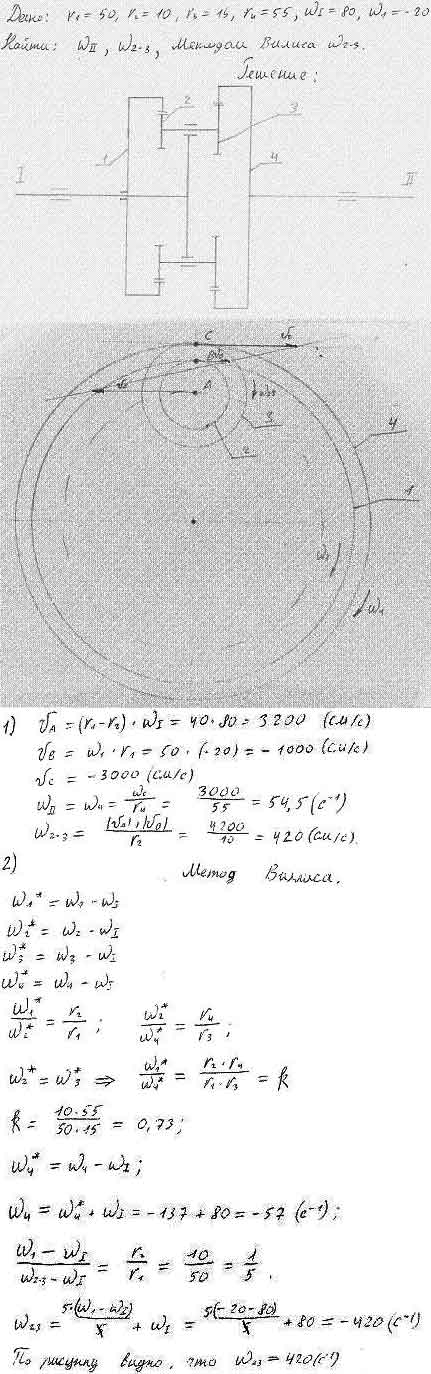 Дано: r₁ = 50, r₂ = 10, r₃ = 15, r₄ = 55, ω_I = 80, ω₁ = -20
Найти: ω_II, ω₂₋₃, Методом Вилиса ω₂₋₃.
Решение:
2
3
1
4
I
II
C
A
3
2
4
1
ω₁
1) υ_A = (r₁-r₂)·ω_I = 40·80 = 3200 (см/с)
υ_B = ω₁·r₁ = 50·(-20) = -1000 (см/с)
υ_C = -3000 (см/с)
ω_II = ω₄ = υ_C/r₄ = 3000/55 = 54,5 (с⁻¹)
ω₂₋₃ = |υ_A|+|υ_B|/r₂ = 4200/10 = 420 (см/с).
2) Метод Виллиса.
ω₁* = ω₁ - ω_I
ω₂* = ω₂ - ω_I
ω₃* = ω₃ - ω_I
ω₄* = ω₄ - ω_I
ω₁*/ω₂* = r₂/r₁ ; ω₂*/ω₄* = r₄/r₃ ;
ω₂* = ω₃* ⇒ ω₁*/ω₄* = r₂·r₄/r₁·r₃ = k
k = 10·55/50·15 = 0,73;
ω₄* = ω₄ - ω_I;
ω₄ = ω₄* + ω_I = -137 + 80 = -57 (с⁻¹);
ω₁ - ω_I/ω₂₋₃ - ω_I = r₂/r₁ = 10/50 = 1/5.
ω₂₃ = 5·(ω₁-ω_I)/1 + ω_I = 5(-20-80)/1 + 80 = -420 (с⁻¹)
По рисунку видно, что ω₂₃ = 420 (с⁻¹)